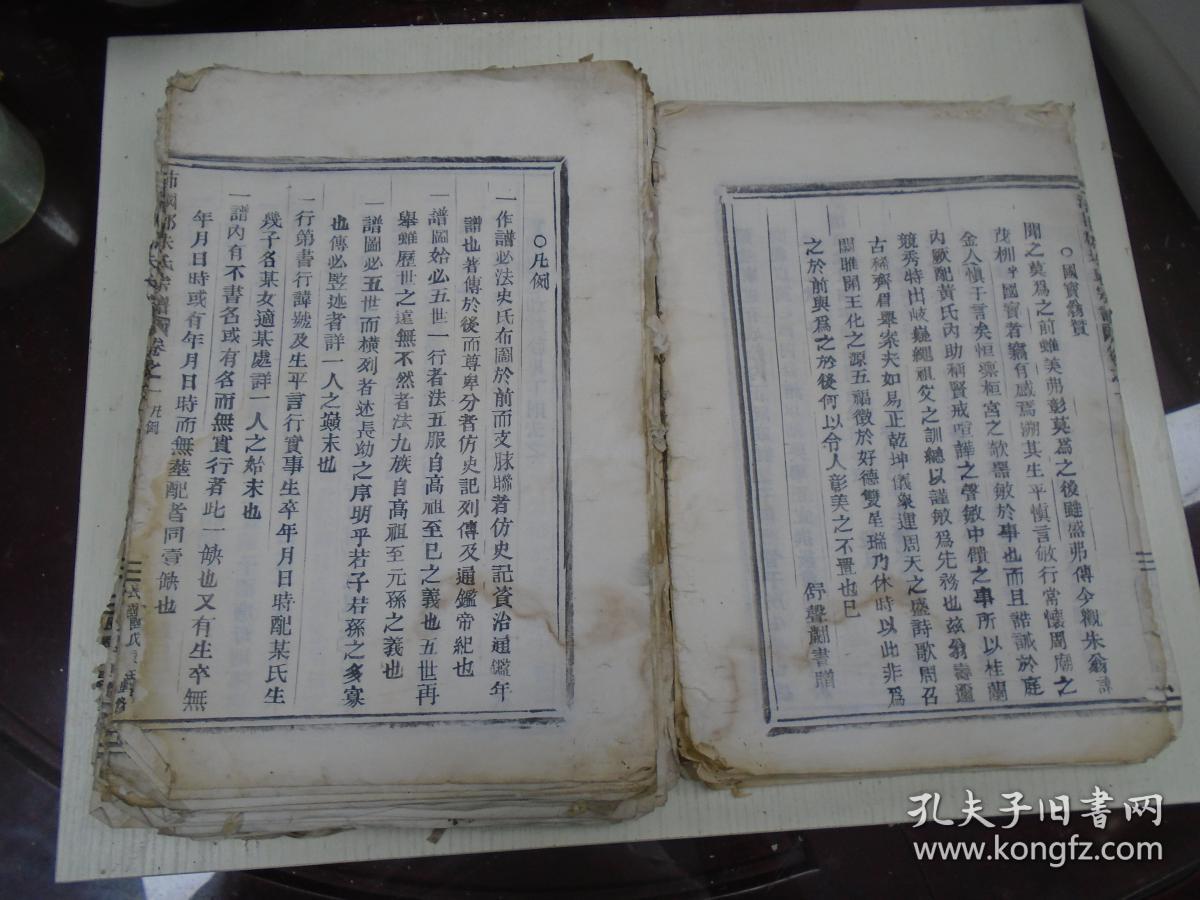 ○國寶翁贊
聞之莫爲之前雖美弗彰莫爲之後雖盛弗傳今觀朱翁諱
茂栦字國寶者竊有感焉溯其生平慎言敏行常懷周廟之
金人慎于言矣恒凛桓宮之欹器敏於事也而且誥誡於庭
內厥配黃氏內助稱賢戒喧譁之聲敏中饋之事所以桂蘭
競秀特出岐嶷繩祖父之訓總以謹敏爲先務也兹翁壽邁
古稀齊眉舉案夫如易正乾坤儀象運周天之盛詩歌周召
關雎開王化之源五福徵於好德雙星瑞乃休時以此非爲
之於前與爲之於後何以令人彰美之不置也已
舒聲謝書贈
○凡例
一作譜必法史氏布圖於前而支脉聯者仿史記資治通鑑年
譜也著傳於後而尊卑分者仿史記列傳及通鑑帝紀也
一譜圖始必五世一行者法五服自高祖至已之義也五世再
舉雖歷世之遠無不然者法九族自高祖至元孫之義也
一譜圖必五世而橫列者述長幼之序明乎若子若孫之多寡
也傳必竪迹者詳一人之巔末也
一行第書行諱號及生平言行實事生卒年月日時配某氏生
幾子名某女適某處詳一人之始末也
一譜內有不書名或有名而無實行者此一缺也又有生卒無
年月日時或有年月日時而無塟配者同壹缺也
沛國郡朱氏宗譜 卷之一 凡例
孔夫子旧书网
www.kongfz.com